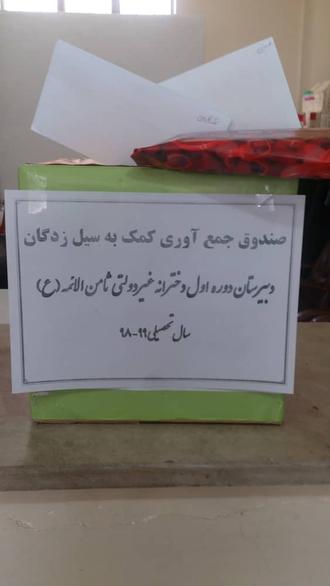 صندوق جمع آوری کمک به سیل زدگان
دبیرستان دوره اول دخترانه غیردولتی ثامن الائمه (ع)
سال تحصیلی ۹۹-۹۸